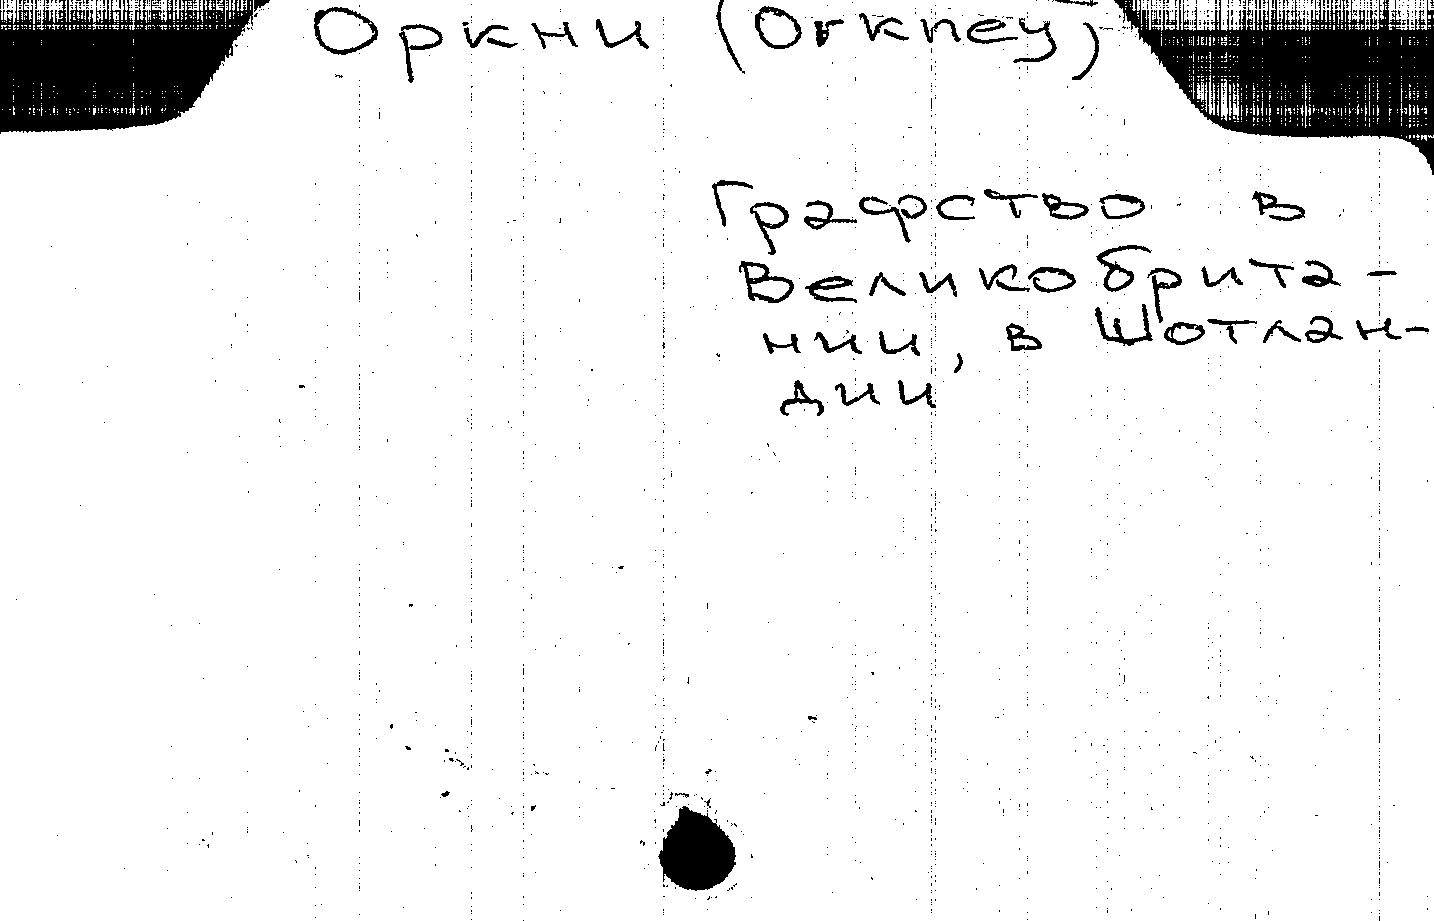 Оркни (Orkney)
Графство в
Великобрита-
нии, в Шотлан-
дии